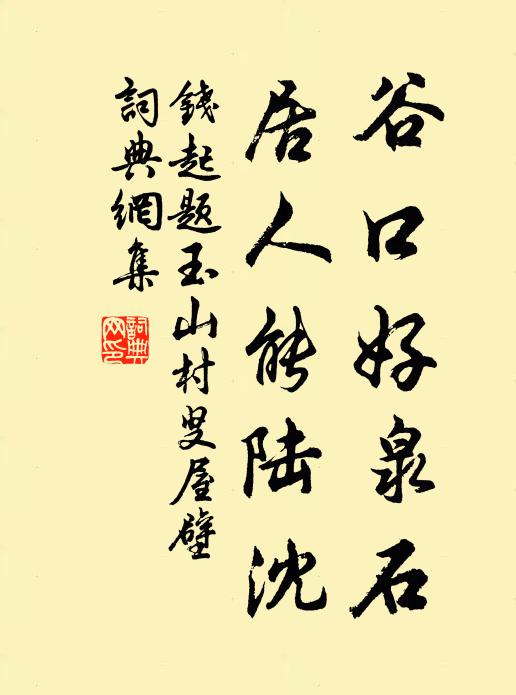 谷口好泉石
居人能陆沈
錢起题玉山村叟屋壁
詞典網集
詞典网印